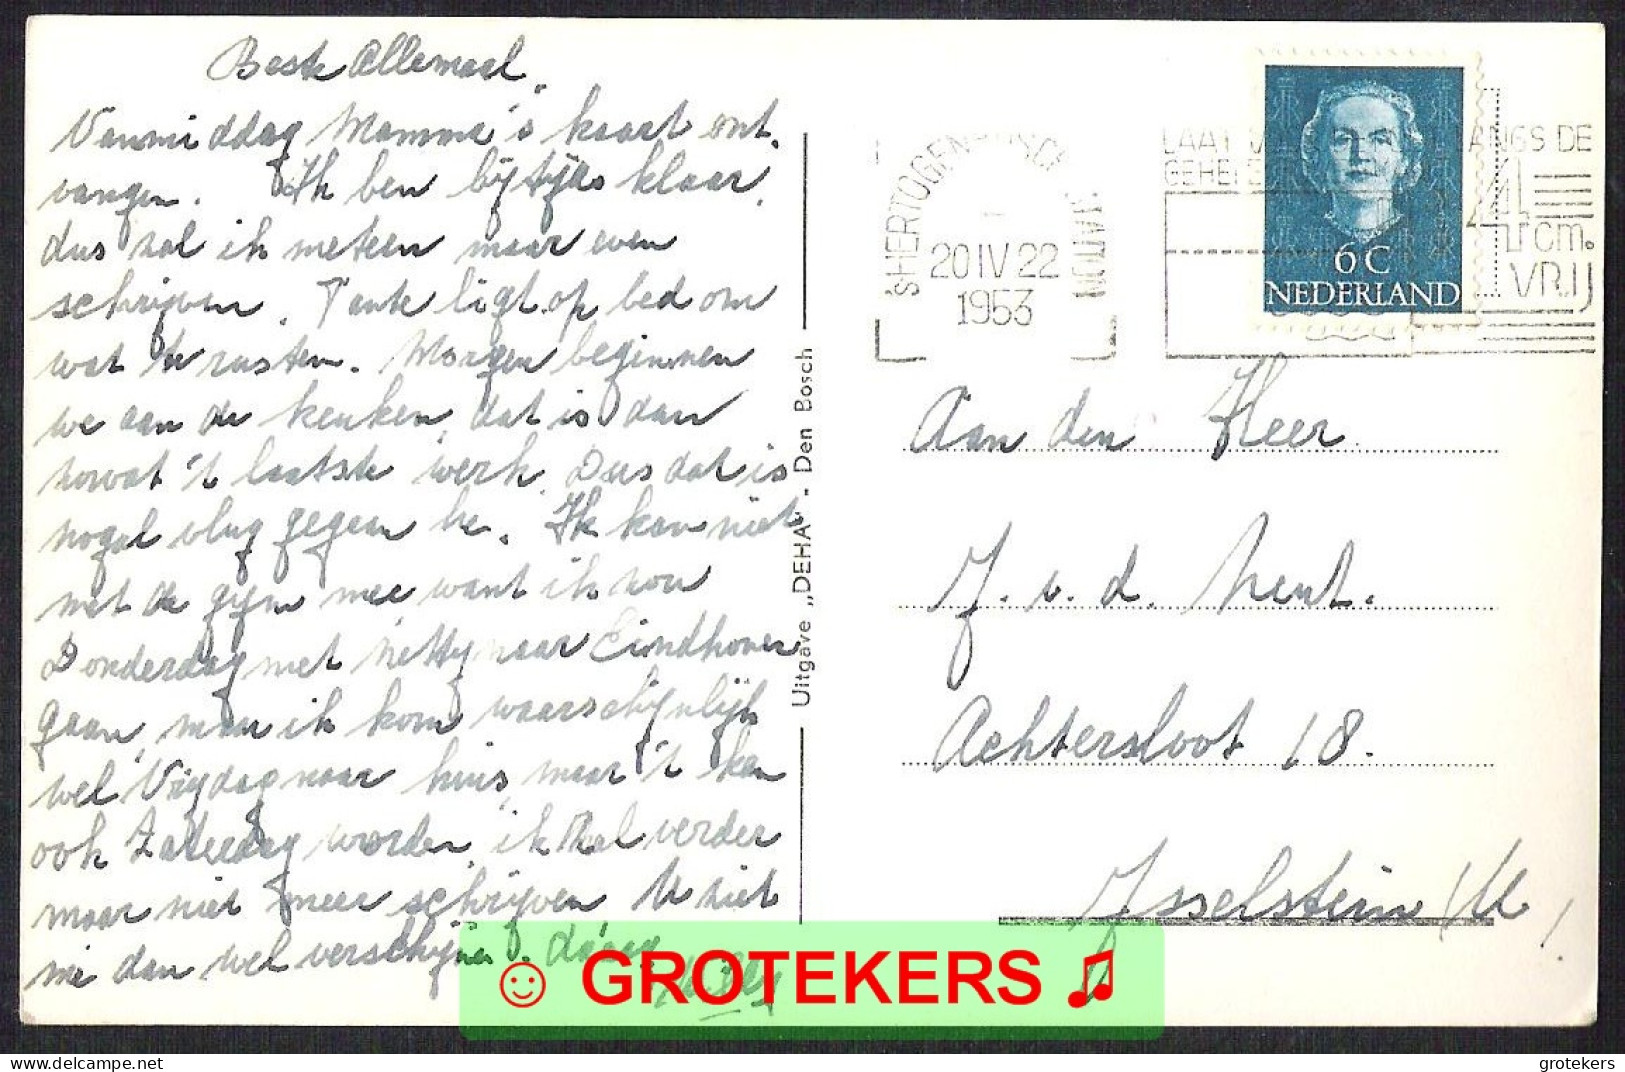 Beste Allemaal,
Vanmiddag Mamma's kaart ont.
vangen. Ik ben bijtijds klaar,
dus zal ik meteen maar even
schrijven. Tante ligt op bed om
wat te rusten. Morgen beginnen
we aan de keuken, dat is dan
zowat 't laatste werk. Dus dat is
nogal vlug gegaan he. Ik kan niet
met de gym mee want ik zou
Donderdag met Netty naar Eindhoven
gaan, maar ik kom waarschijnlijk
wel Vrijdag naar huis, maar 't kan
ook Zaterdag worden, ik zal verder
maar niet meer schrijven U ziet
me dan wel verschijnen. dáág
Willy
Uitgave „DEHA" - Den Bosch
'S HERTOGENBOSCH STATION
20 IV 22
1953
LAAT LANGS DE
GEHELE
4 cm.
VRIJ
6 C
NEDERLAND
Aan den Heer
J. v. d. Neut.
Achtersloot 18.
IJsselstein (U)
☺ GROTEKERS ♫
delcampe.net
grotekers